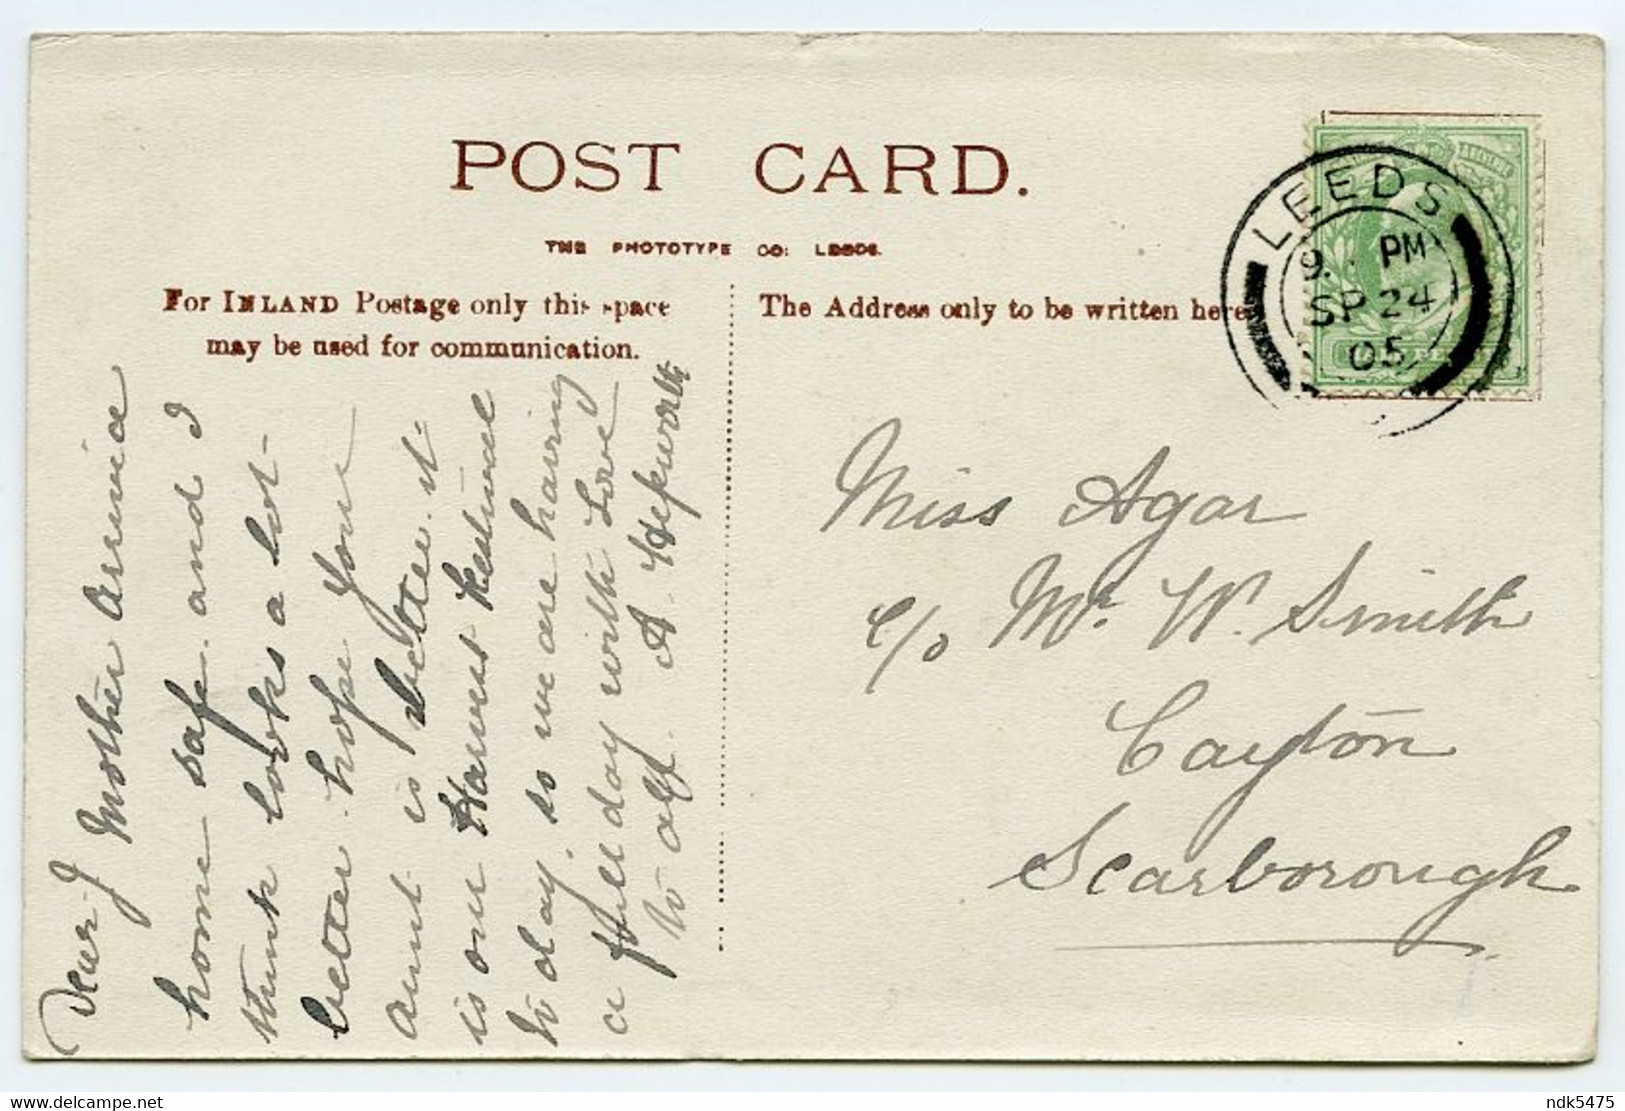 POST CARD.
THE PHOTOTYPE CO: LEEDS.
For INLAND Postage only this space
may be used for communication.
The Address only to be written here
LEEDS
9 PM
SP 24
05
Dear J
Mother arrived
home safe. and I
think looks a lot
better. hope your
aunt is better. it
is our Harvest Festival
to day. so we are having
a full day with Love
to all. A. Hepworth
Miss Agar
c/o Mr. W. Smith
Cayton
Scarborough
delcampe.net
ndk5475